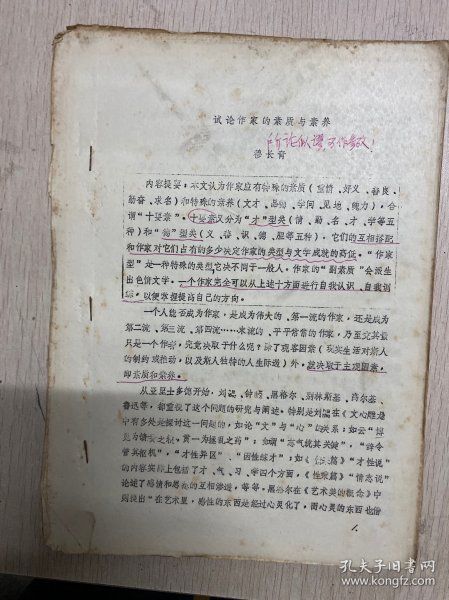 试论作家的素质与素养
所论似谬,不作参考!
穆长青
内容提要:本文认为作家应有特殊的素质(重情、好义、善良、
勤奋、求名)和特殊的素养(文才、品德、学问、见地、魄力),合
谓“十要素”。十要素又分为“才”型类(情、勤、名、才、学等五
种)和“德”型类(义、善、识、德、胆等五种)。它们的互相搭配
和作家对它们占有的多少决定作家的类型与文学成就的高低。“作家
型”是一种特殊的类型它决不同于一般人。作家的“副素质”会派生
出色情文学。一个作家完全可以从上述十方面进行自我认识、自我训
练,以便掌握提高自己的方向。
一个人能否成为作家,是成为伟大的、第一流的作家,还是成为
第二流、第三流、第四流……末流的、平平常常的作家,乃至究其最
只是一个作家,究竟决取于什么呢?除了观客因素(现实生活对斯人
的制约或推动,以及斯人独特的人生际遇)外,就决取于主观因素,
即素质和素养。
从亚里士多德开始,刘勰、钟嵘、黑格尔、别林斯基、高尔基、
鲁迅等,都重视了这个问题的研究与阐述。特别是刘勰在《文心雕龙》
中有多处是探讨这一问题的,如论“文”与“心”的关系;如云“博
见为馈贫之粮,贯一为拯乱之药”;如谓“志气统其关键”,“辞令
管其枢机”,“才性异区”、“因性练才”;如《体性篇》“才性说”
的内容实际上包括了才、气、习、学四个方面,《情采篇》“情志说”
论述了感情和思想的互相渗透,等等。黑格尔在《艺术美的概念》中
则提出“在艺术里,感性的东西是经过心灵化了,而心灵的东西也借
1.
孔夫子旧书网
book.kongfz.com